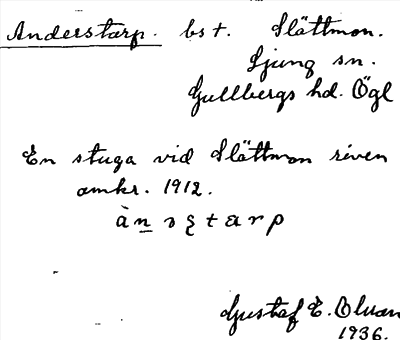 Anderstarp. bst. Slättmon.
Ljung sn.
Gullbergs hd. Ögl
En stuga vid Slättmon riven
omkr. 1912.
àn̲ ɜʂtarp
Gustaf E. Olsson
1936.